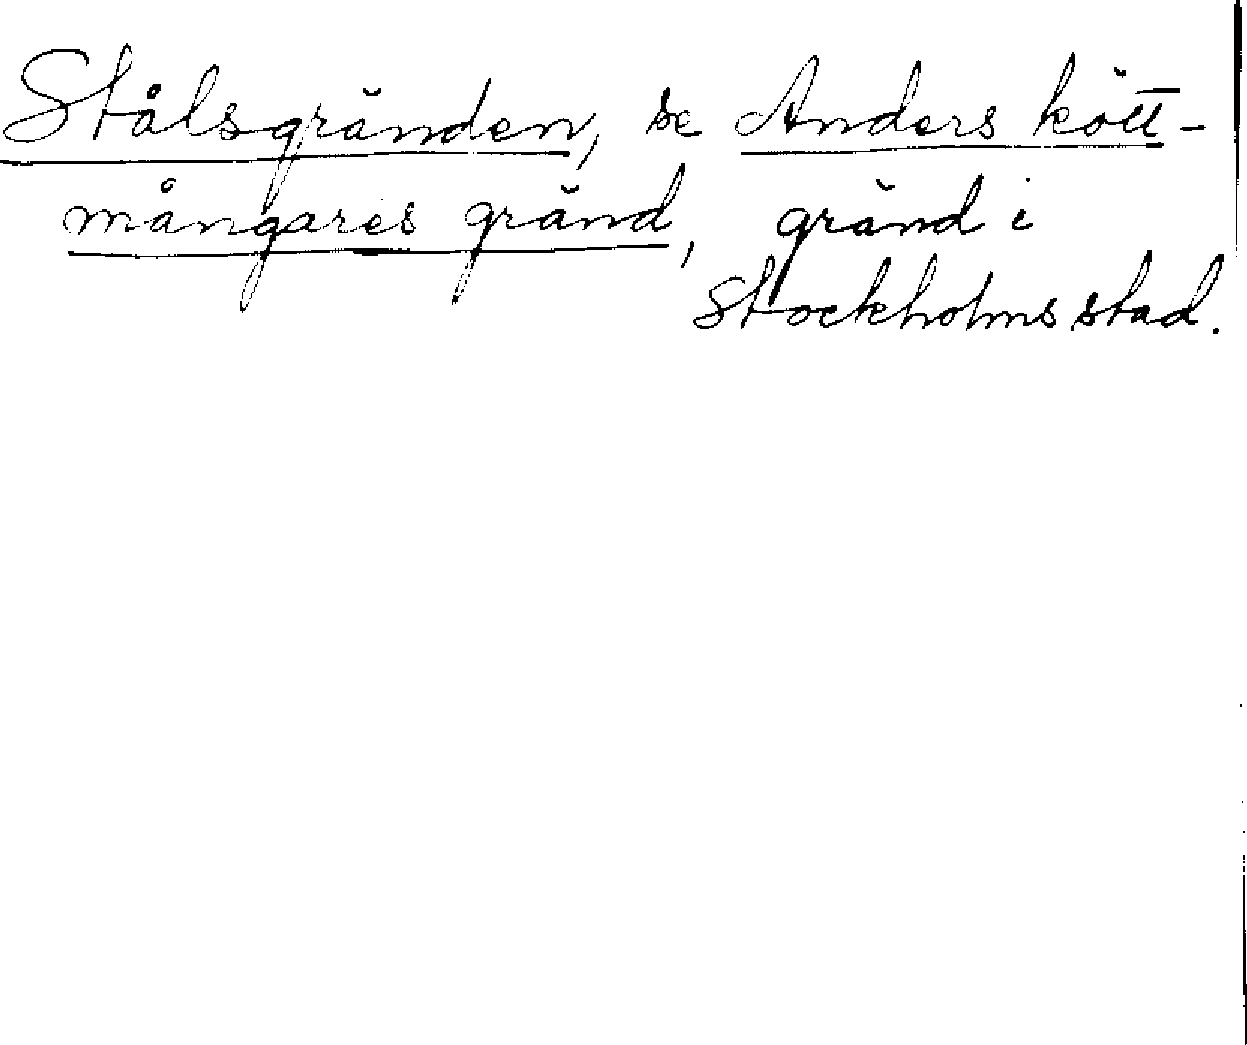 Stålsgränden, se Anders kött-
mångares gränd, gränd i
Stockholms stad.